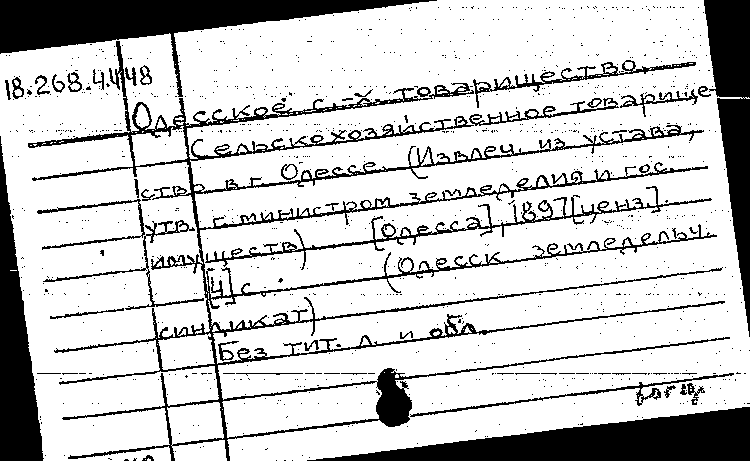 18.268.4.448
Одесское с.-х. товарищество.
Сельскохозяйственное товарище-
ство в г. Одессе. (Извлеч. из устава,
утв. г. министром земледелия и гос.
имуществ). [Одесса], 1897 [ценз.].
[4] с. (Одесск земледельч.
синдикат).
Без тит. л. и обл.